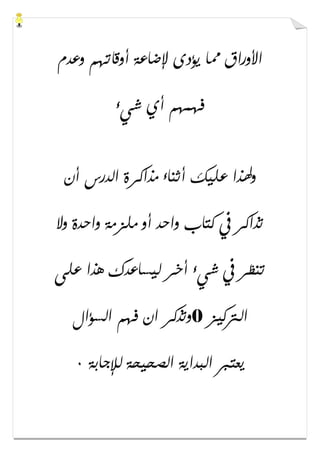 الأوراق مما يؤدى لإضاعة أوقاتهم وعدم
فهمهم أي شيء
ولهذا عليك أثناء مذاكرة الدرس أن
تذاكر في كتاب واحد أو ملزمة واحدة ولا
تنظر في شيء أخر ليساعدك هذا على
التركيز 0وتذكر ان فهم السؤال
يعتبر البداية الصحيحة للإجابة .